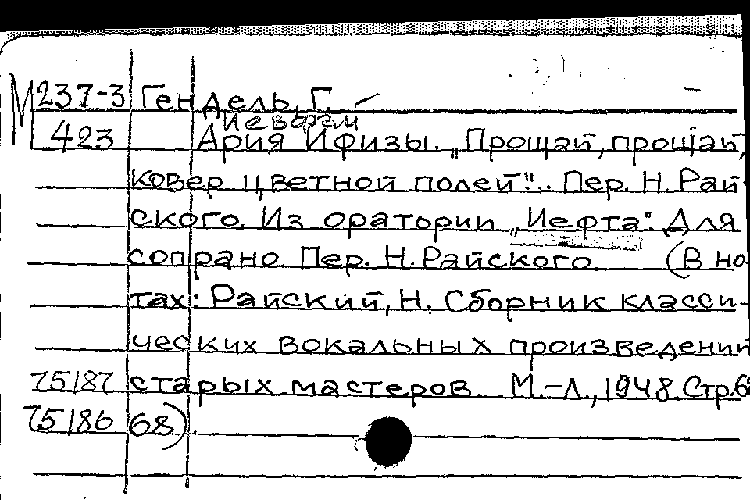 М 237-3 Гендель, Г.
423 Ария Ифизы. „Прощай, прощай,
ковер цветной полей". Пер. Н. Рай-
ского. Из оратории „Иефта". Для
сопрано Пер. Н. Райского. (В но-
тах: Райский, Н. Сборник класси-
ческих вокальных произведений
75/87 старых мастеров. М.-Л., 1948. Стр. 6
75/86 68).